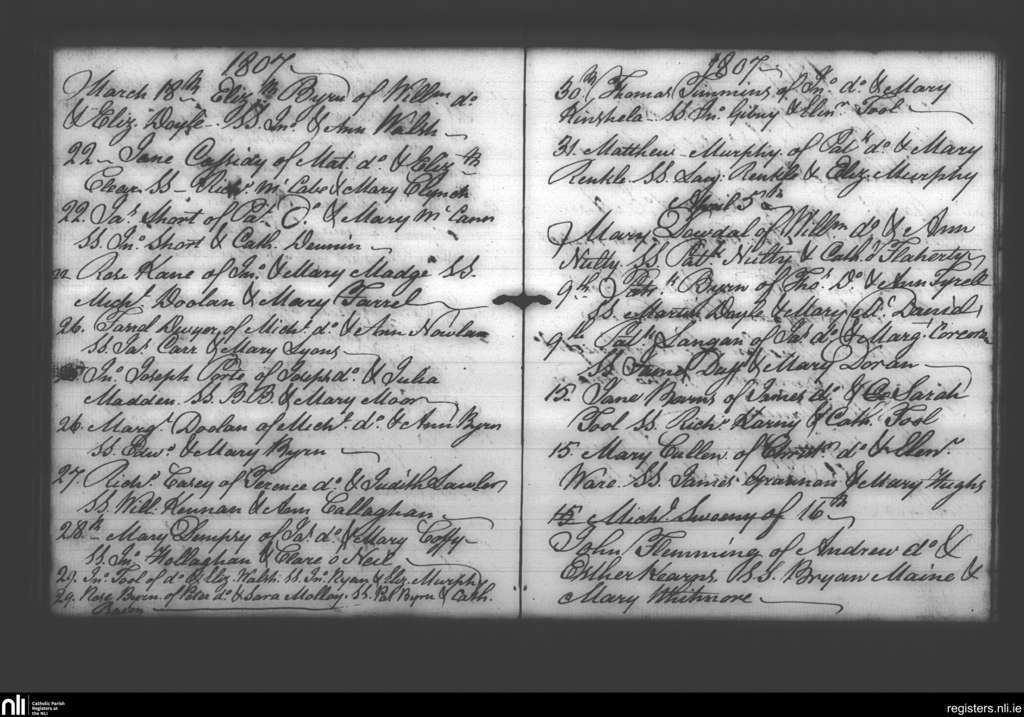 1807
March 18th Elizth Byrn of Willm do
& Eliz. Doyle SS Jno. & Ann Walsh
22 Jane Cassidy of Mat. do. & Elizth
SS Richd. McCabe & Mary Clynch
22. Jas. Short of Pat. Do. & Mary McCann
SS. Jno. Short & Cath. Dennin
22. Rose Kane of Jno. & Mary Madge SS.
Michl. Doolan & Mary Farrel
26. Dwyer of Michl. do. & Ann Nowlan
SS. Jas. Carr & Mary Lyons
Jno. Joseph of do. & Julia
Madden. SS. B.B. & Mary Moor
26. Margt. Doolan of Michl. do. & Ann Byrn
SS. Edwd. & Mary Byrn
27. Richd. Casey of Terence do. & Judith Lawlor
SS. Will. Kennan & Ann Callaghan
28th Mary Dempsey of Jas. do. & Mary Coffy
SS. Jno. Hollaghan & Clare o Neil
29. Jno. Tool of do. & Eliz. Walsh. SS. Jno. Ryan & Eliz. Murphy
29. Rose Byrn. of Peter do. & Sara Molloy. SS. Pat Byrn & Cath.
1807
30th Thomas Timmins of Jno. do. & Mary
Hinshela. SS. Jno. Gibny & Elinr. Tool
31. Matthew Murphy of Patk. do. & Mary
Renkle. SS. Lau; Renkle & Eliz. Murphy
April 5th
Mary Dowdal of Willm do. & Ann
Nulty SS. Patk. Nulty & Cath. O'Flaherty
9th Patk. Byrn of Thos. Do. & Ann Tyrell
SS. Martin Doyle & Mary Mc. Daniel
9th Patk. Langan of Jas. do. & Margt. Corcoran
SS Day & Mary Doran
15. Jane Barns of James do. & Sarah
Tool SS. Richd. Karny & Cath. Tool
15. Mary Cullen of Christr. do. & Ellenr.
Ware. SS. James Grannan & Mary Hughs
15 Michl. Sweeny of 16th
John Flemming of Andrew do. &
Esther Kearns. SS. Bryan Maine &
Mary Whitmore
nli
Catholic Parish
Registers at
the NLI
registers.nli.ie